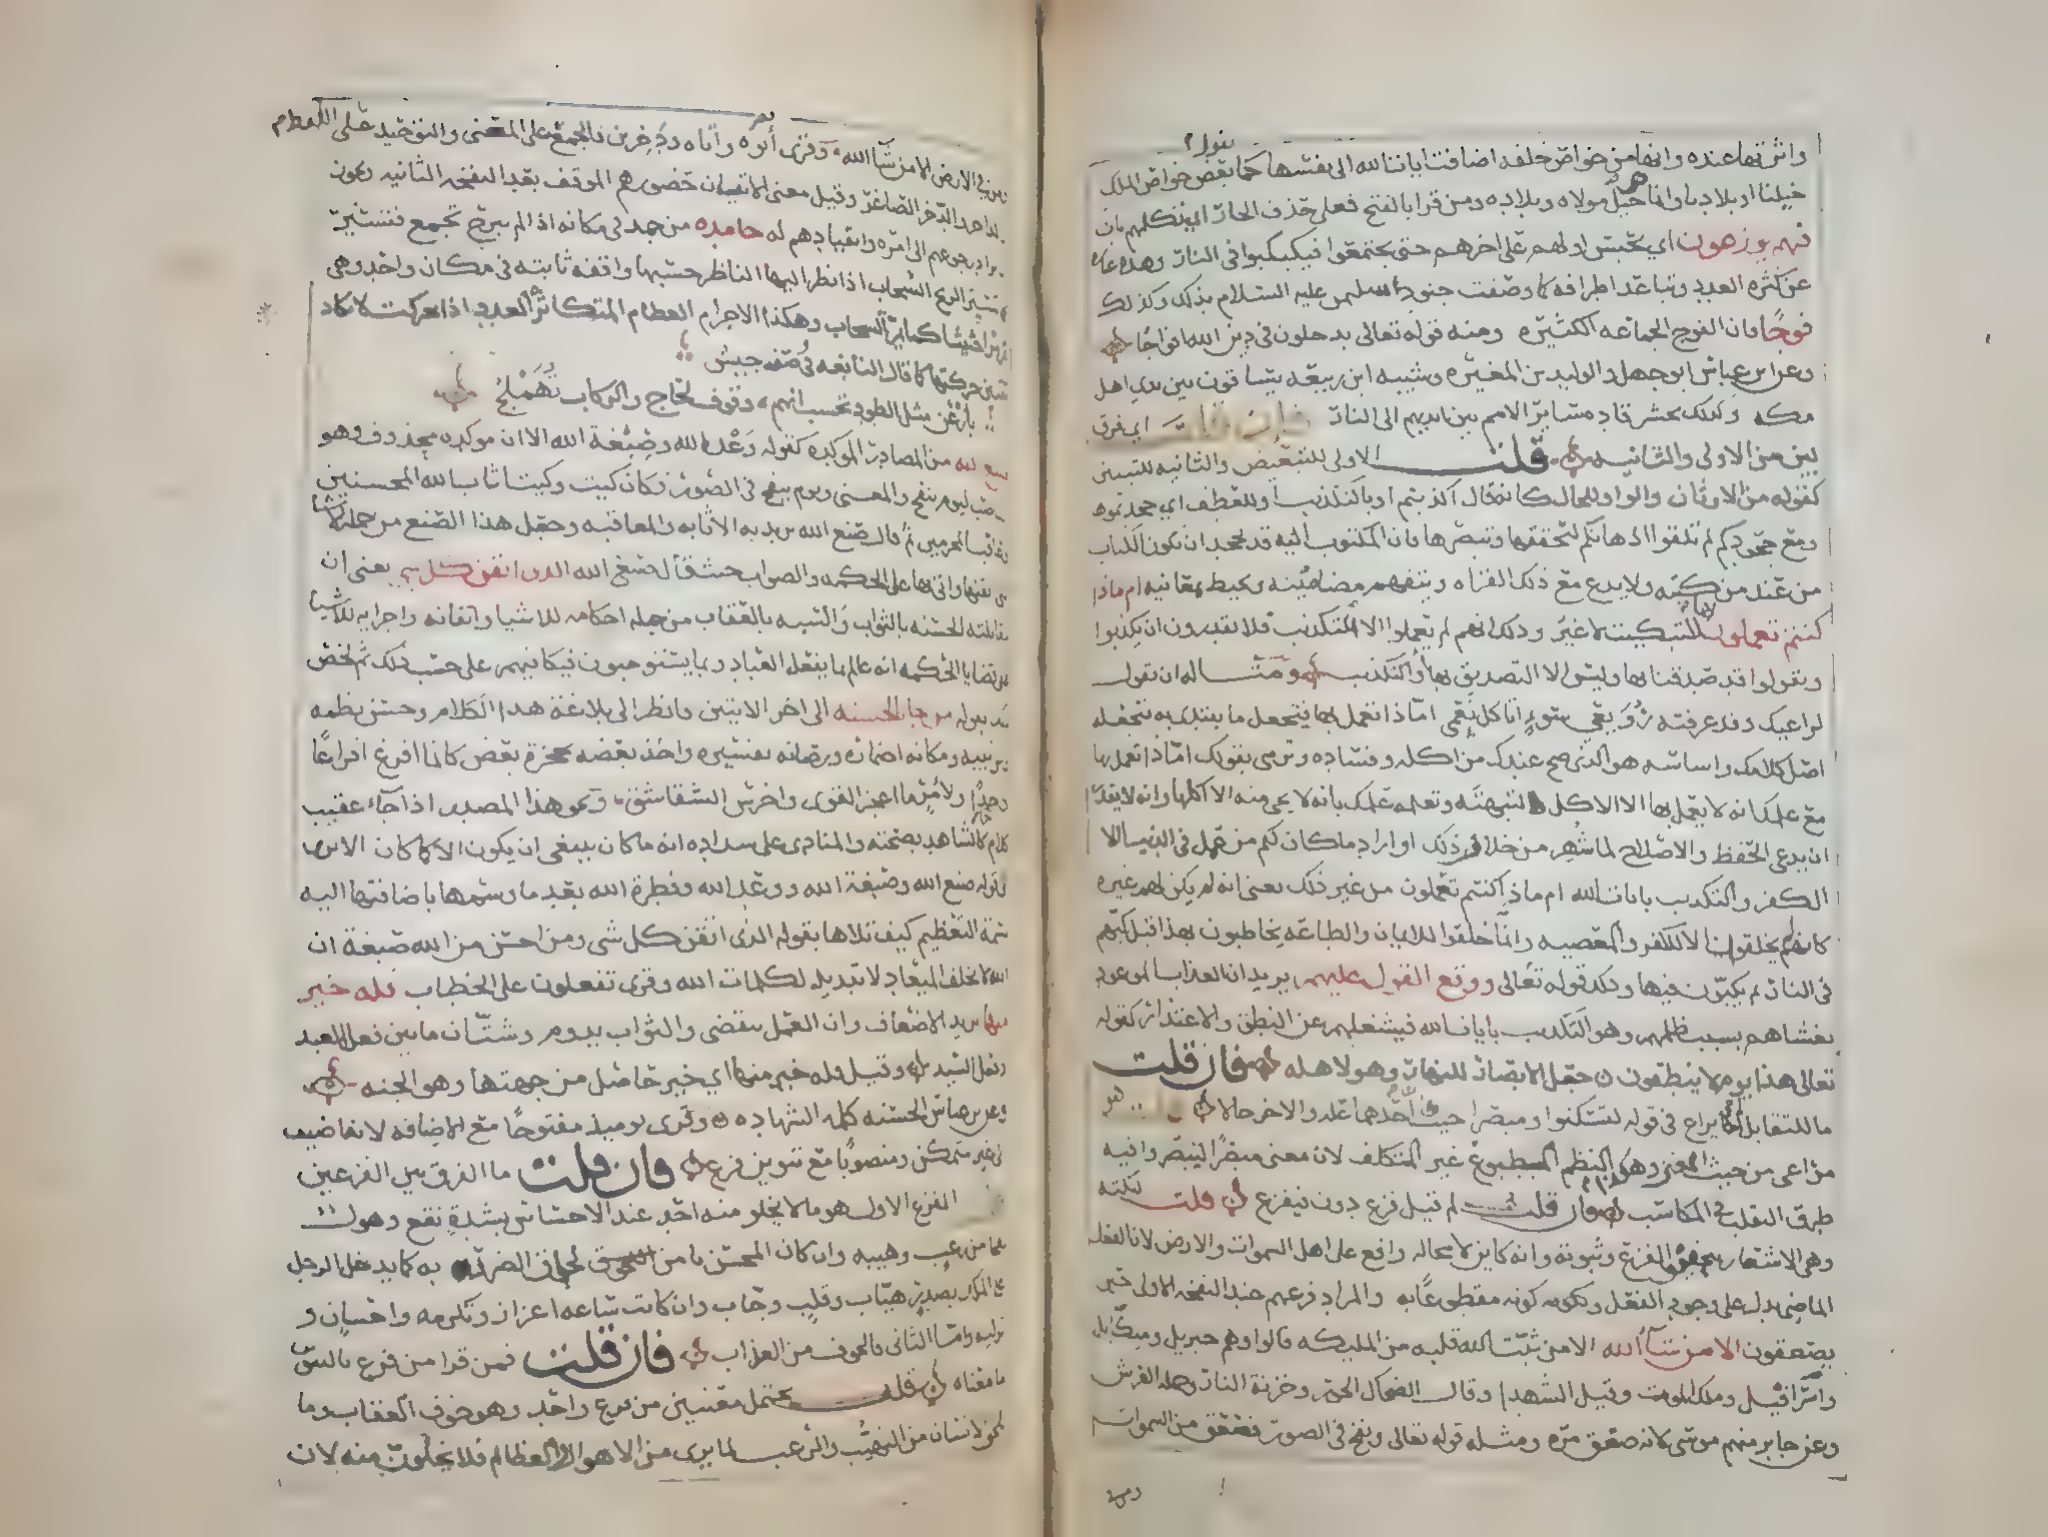 وأثرتها عنده وانها من خواص خلقه اضافت ايات الله الى نفسها كما يقول بعض خواص الملك
خيلنا او بلادنا وانما هي خيل مولاه وبلاده ومن قرا بالفتح فعلى حذف الجار اي تكلمهم بان
فهم يوزعون اي يحبس اولهم على اخرهم حتى يجتمعوا فيكبكبوا في النار وهذه عبارة
عن كثرة العدد وتباعد اطرافه كما وصفت جنود سليمن عليه السلام بذلك وكذلك
فوجا فان الفوج الجماعه الكثيره ومنه قوله تعالى يدخلون في دين الله افواجا
وعن ابن عباس ابو جهل والوليد بن المغيره وشيبه ابن ربيعه يساقون بين يدي اهل
مكه وكذلك يحشر قاده سائر الامم بين ايديهم الى النار فان قلت اي فرق
بين من الاولى والثانيه قلت الاولى للتبعيض والثانيه للتبيين
كقوله من الاوثان والواو للحال كانه قال اكذبتم او بالتكذيب او للعطف اي جحدتموها
ومع جحودكم لم تلقوا اذهانكم لتحققها وتبصرها فان المكتوب اليه قد يجحد ان يكون الكتاب
من عند من كتبه ولا يدع مع ذلك القراه ويتفهم مضامينه ويحيط بمعانيه ام ماذا
كنتم تعملون للتبكيت لا غير وذلك انهم لم يعملوا الا التكذيب فلا يقدرون ان يكذبوا
ويقولوا قد صدقنا بها وليس الا التصديق بها او التكذيب ومثاله ان تقول
لراعيك وقد عرفته رويعي سوء اتاكل نعمي ام ماذا تعمل بها فتجعل ما يبتدى به وتجعله
اصل كلامك واساسه هو الذي صح عندك من اكله وفساده وترمى بقولك ام ماذا تعمل بها
مع علمك انه لا يعمل بها الا الاكل لتبهته وتعلمه علمك بانه لا يجى منه الا اكلها وانه لا يقدر
ان يدعي الحفظ والاصلاح لما شهر من خلاف ذلك او اراد ما كان لكم من عمل في الدنيا الا
الكفر والتكذيب بايات الله ام ماذا كنتم تعملون من غير ذلك يعني انه لم يكن لهم عمل غيره
كانهم لم يخلقوا الا للكفر والمعصيه وانما خلقوا للايمان والطاعه يخاطبون بهذا قبل كبهم
في النار ثم يكبون فيها وذلك قوله تعالى ووقع القول عليهم يريد ان العذاب الموعود
يغشاهم بسبب ظلمهم وهو التكذيب بايات الله فيشغلهم عن النطق والاعتذار كقوله
تعالى هذا يوم لا ينطقون جعل الابصار للنهار وهو لاهله فان قلت
ما للتقابل لم يراع في قوله لتسكنوا ومبصرا حيث كان احدهما عله والاخر حالا قلت هو
مراعى من حيث المعنى وهكذا النظم المطبوع غير المتكلف لان معنى مبصرا ليبصروا فيه
طرق التقلب في المكاسب فان قلت لم قيل فزع دون فيفزع قلت لنكته
وهي الاشعار بتحقيق الفزع وثبوته وانه كاين لا محاله واقع على اهل السموات والارض لان الفعل
الماضي يدل على وجود الفعل وكونه مقطوعا به والمراد فزعهم عند النفخه الاولى حين
يصعقون الا من شاء الله الا من ثبت الله قلبه من المليكه قالوا وهم جبريل وميكايل
واسرافيل وملك الموت وقيل الشهدا وقال الضحاك الحور وخزنة النار وحمله العرش
وعن جابر منهم موسى لانه صعق مره ومثله قوله تعالى ونفخ في الصور فصعق من في السموات
ومن
ومن في الارض الا من شا الله وقرى أتوه وأتاه ودخرين فالجمع على المعنى والتوحيد على اللفظ
والداخر والدخر الصاغر وقيل معنى الاتيان حضورهم الموقف بعد النفخه الثانيه ويجوز
ان يراد رجوعهم الى امره وانقيادهم له جامده من جمد في مكانه اذا لم يبرح تجمع فتسير
كما تسير الريح السحاب اذا نظر اليها الناظر حسبها واقفه ثابته في مكان واحد وهي
تمر مرا حثيثا كما يمر السحاب وهكذا الاجرام العظام المتكاثرة العدد اذا تحركت لا تكاد
تتبين حركتها كما قال النابغه في صفه جيش
بأرعن مثل الطود تحسب انهم وقوف لحاج والركاب تهملج
صنع الله من المصادر الموكده كقوله وعد الله وصبغة الله الا ان موكده محذوف وهو
الناصب ليوم ينفخ والمعنى ويوم ينفخ في الصور فكان كيت وكيت اثاب الله المحسنين
وعاقب المجرمين ثم قال صنع الله يريد به الاثابه والمعاقبه وجعل هذا الصنع من جملة الاشيا
التي اتقنها واتى بها على الحكمه والصواب حيث قال صنع الله الذي اتقن كل شي يعني ان
مقابلته الحسنه بالثواب والسيه بالعقاب من جمله احكامه للاشيا واتقانه واجرايه للاشيا
على قضايا الحكمه انه عالم بما يفعل العباد وبما يستوجبون فيكافيهم على حسب ذلك ثم لخص
ذلك بقوله من جا بالحسنه الى اخر الايتين فانظر الى بلاغة هذا الكلام وحسن نظمه
وترتيبه ومكانه اضماده ورصانه تفسيره واخذ بعضه بحجزة بعض كانما افرغ افراغا
واحدا ولامر ما اعجز القوى واخرس الشقاشق ونحو هذا المصدر اذا جاء عقيب
كلام جا كالشاهد بصحته والمنادى على سداده انه ما كان ينبغي ان يكون الا كما كان الا ترى
الى قوله صنع الله وصبغة الله ووعد الله وفطرة الله بعد ما وسمها باضافتها اليه
بسمة التعظيم كيف تلاها بقوله الذي اتقن كل شي ومن احسن من الله صبغة ان
الله لا يخلف الميعاد لا تبديل لكلمات الله وقرى تفعلون على الخطاب فله خير
منها يريد الاضعاف وان العمل ينقضي والثواب يدوم وشتان ما بين فعل العبد
وفعل السيد وقيل فله خير منها اي خير حاصل من جهتها وهو الجنه
وعن ابن عباس الحسنه كلمه الشهاده وقرى يوميذ مفتوحا مع الاضافه لانه اضيف
الى غير متمكن ومنصوبا مع تنوين فزع فان قلت ما الفرق بين الفزعين
الفزع الاول هو ما لا يخلو منه احد عند الاحساس بشدة تقع وهول
يفجا من رعب وهيبه وان كان المحسن يامن لحاق الضرر به كما يدخل الرجل
على الملك بصدر هياب وقلب وجاب وان كانت ساعه اعزاز وتكرمه واحسان و
تولية واما الثاني فالخوف من العذاب فان قلت فمن قرا من فزع بالتنوين
ما معناه قلت يحتمل معنيين من فزع واحد وهو خوف العقاب وما
يلحق الانسان من التهيب والرعب لما يرى من الاهوال والعظائم فلا يخلون منه لان